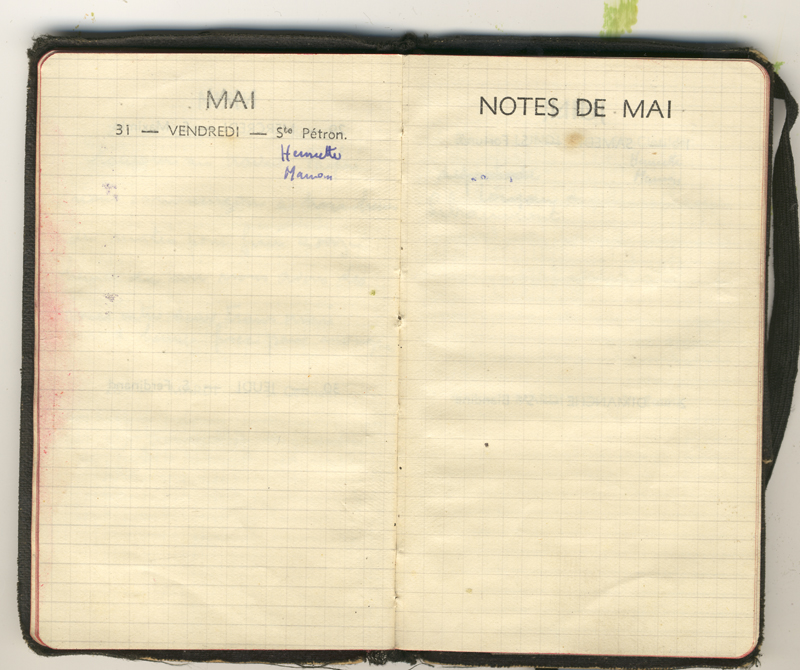 MAI
31 — VENDREDI — Ste Pétron.
Henriette
Manon
NOTES DE MAI